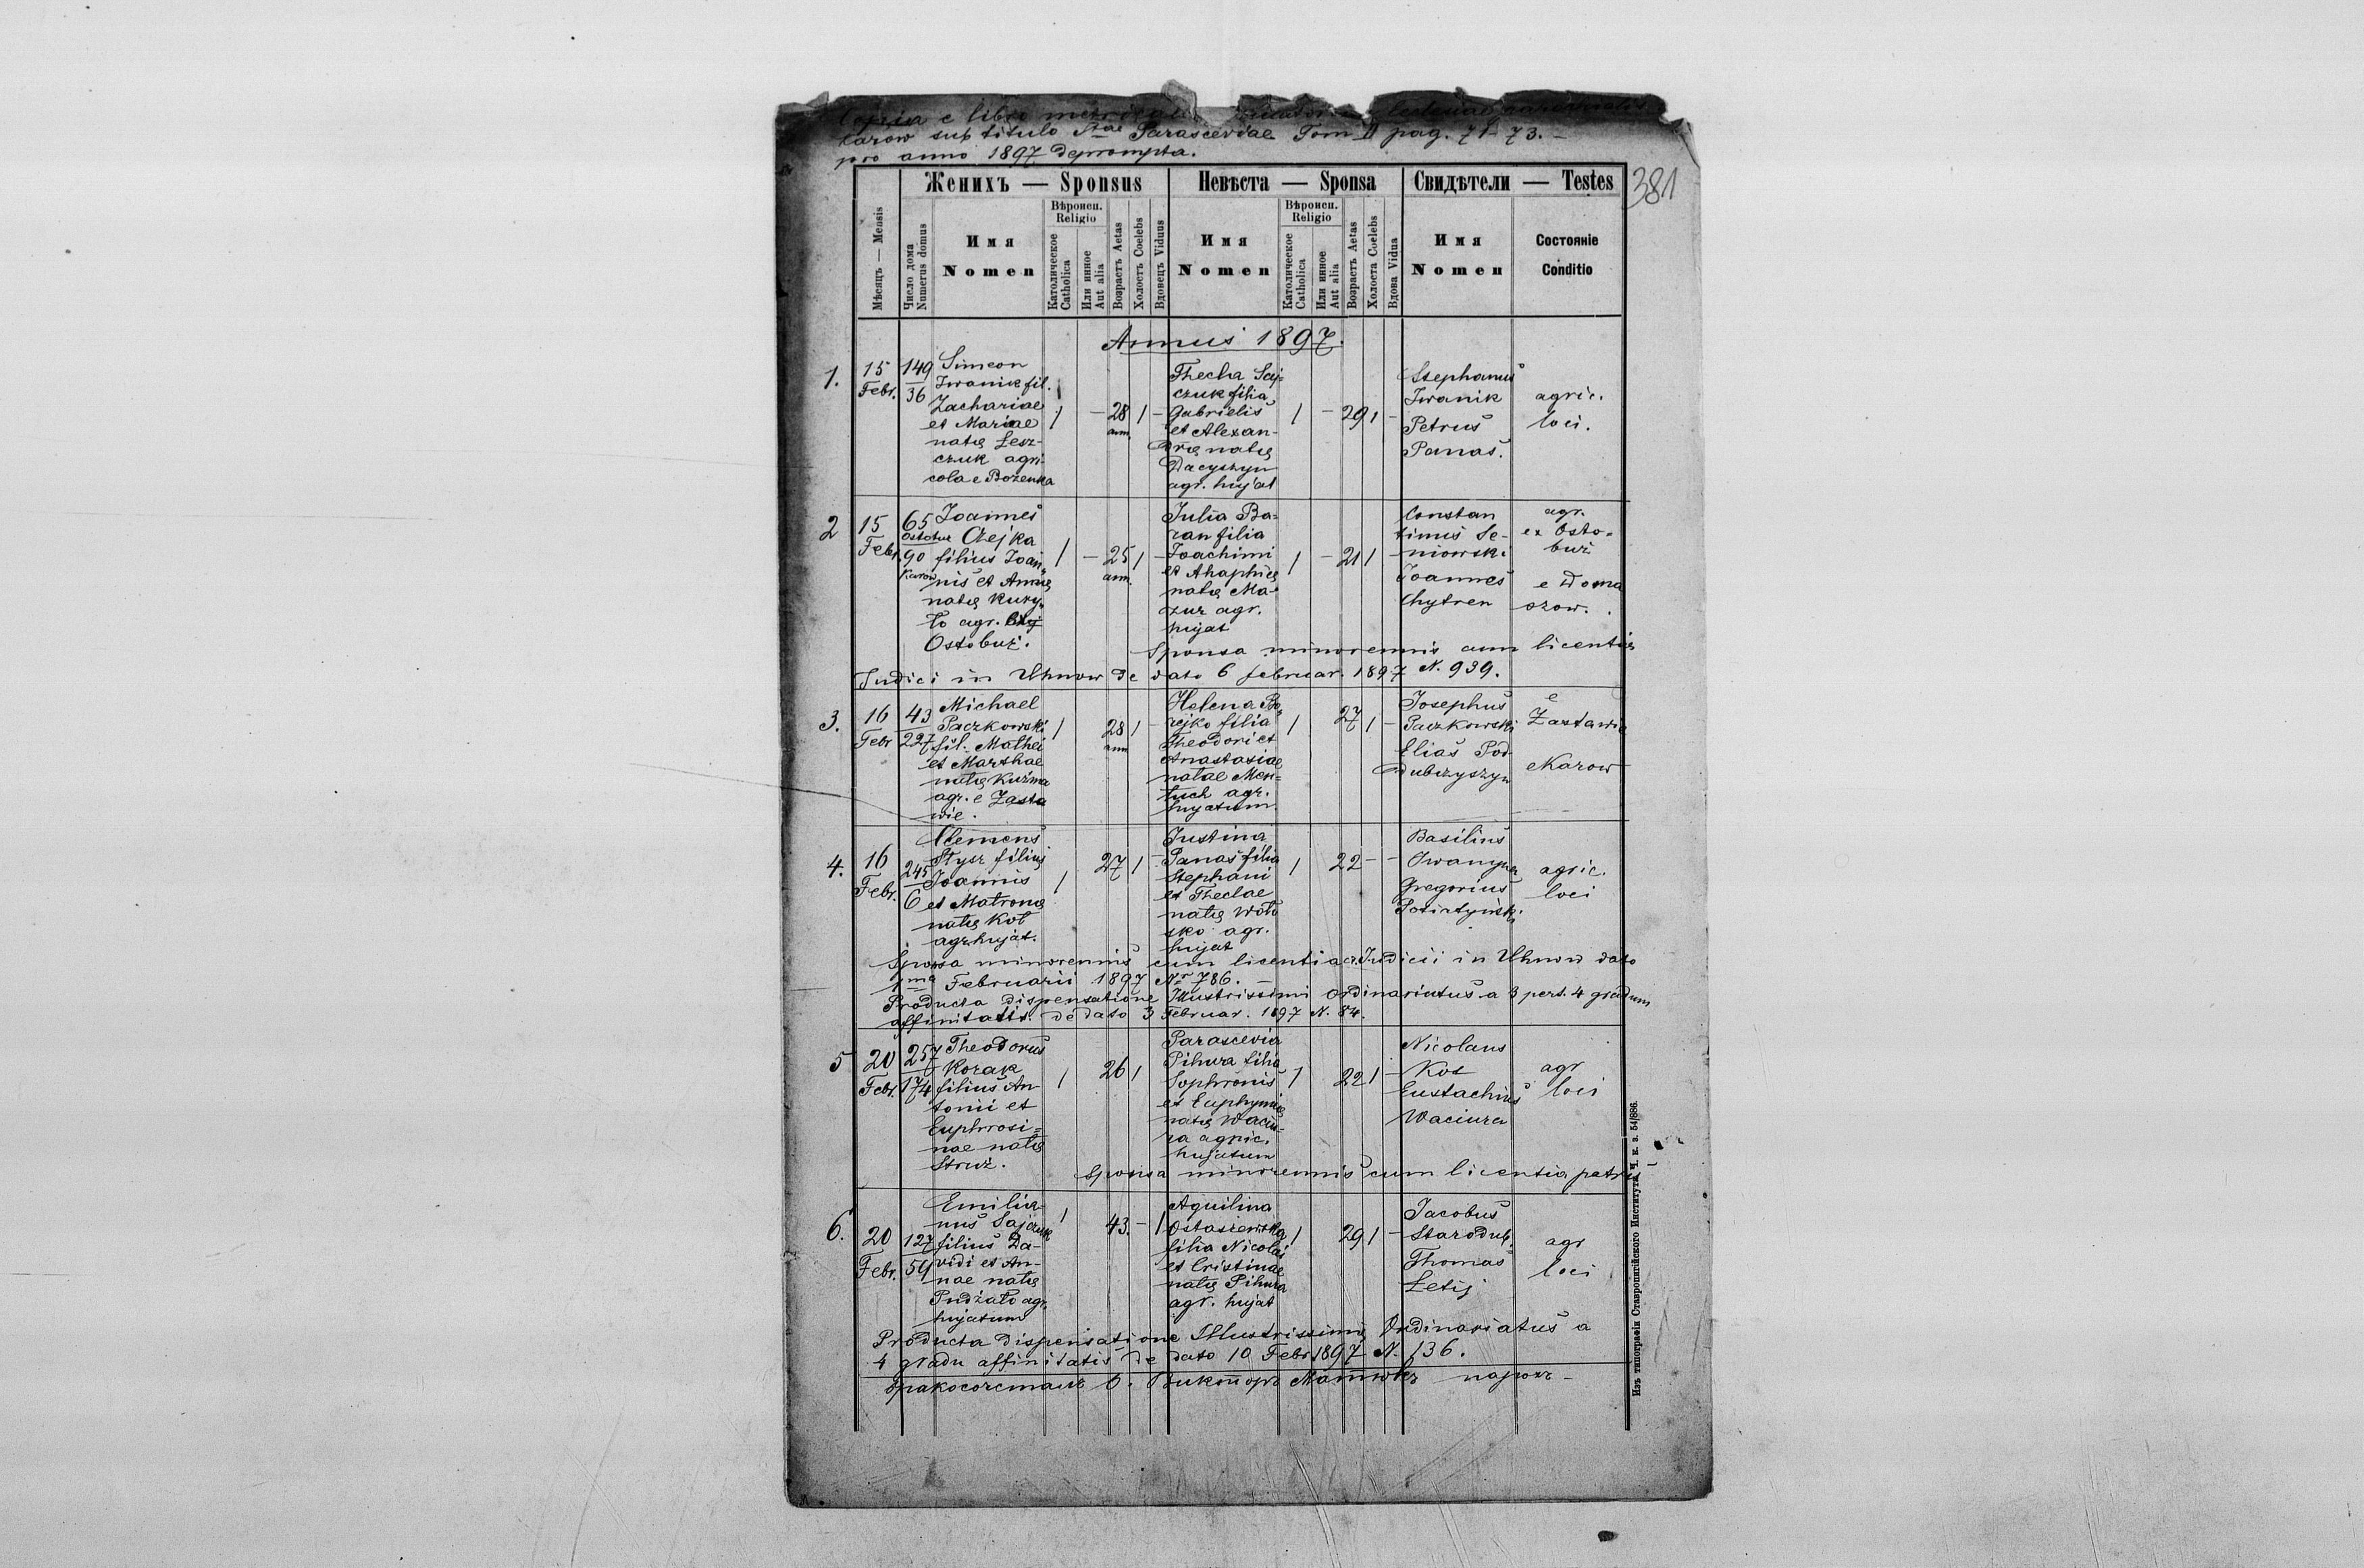 Copia e libro metricali
Karow sub titulo Stae Parasceviae Tom II pag. 71-73. -
pro anno 1897 deprompta.
381
Женихъ — Sponsus
Невѣста — Sponsa
Свидѣтели — Testes
Мѣсяцъ — Mensis
Число дома
Numerus domus
Имя
Nomen
Вѣроисп.
Religio
Католическое
Catholica
Или инное
Aut alia
Возрастъ Aetas
Холостъ Coelebs
Вдовецъ Viduus
Имя
Nomen
Вѣроисп.
Religio
Католическое
Catholica
Или инное
Aut alia
Возрастъ Aetas
Холоста Coelebs
Вдова Vidua
Имя
Nomen
Состояніе
Conditio
Annus 1897.
1.
15
Febr.
149
36
Simeon
Iwanik fil.
Zachariae
et Mariae
natę Lesz-
czuk agri-
cola e Bożenka
1 - 28 1 -
ann.
Thecla Saj-
czuk filia
Gabrielis
et Alexan-
drę natę
Dacyszyn
agr. hujat
1 - 29 1 -
Stephanus
Iwanik
Petrus
Panas.
agric.
loci.
2
15
Febr.
65
Ostobuż
90
Karow
Joannes
Czejka
filius Joan-
nis et Annę
natę Kury-
ło agr.
Ostobuż.
1 - 25 1 -
ann.
Julia Ba-
ran filia
Joachimi
et Ahaphię
natę Ma-
zur agr.
hujat
1 - 21 1 -
Constan
tinus Se-
niowski
Joannes
Chytren
agr.
ex Osto-
buż
e Doma
szow.
Sponsa minorennis cum licentia
Judici in Uhnow de dato 6 februar. 1897 N. 939.
3.
16
Febr
43
227
Michael
Paczkowski
fil. Mathei
et Marthae
natę Kuźma
agr. e Zasta
wie.
1 28 1 -
ann
Helena Bo-
rejko filia
Theodori et
Anastasiae
natae Men-
tuch agr.
hujatum.
1 27 1 -
Josephus
Paczkowski
Elias Pod-
dubczyszyn
e
Zastawie
e Karow
4.
16
Febr.
245
6
Clemens
Stysz filius
Joannis
et Matronę
natę Kot
agr. hujat.
1 27 1 -
Justina
Panas filia
Stephani
et Theclae
natę Woło
sko agr.
hujat
1 22 - -
Basilius
Gregorius
agric.
loci
Sponsa minorennis cum licentia cr. Judicii in Uhnow dato
1ma Februarii 1897 Nr 786. -
Producta dispensatione Illustrissimi Ordinariatus a 3 pert. 4 gradum
affinitatis de dato 3 Februar. 1897 N. 84.
5
20
Febr.
257
174
Theodorus
Korak
filius An-
tonii et
Euphrosi-
nae natę
Struż.
1 26 1
Parascevia
Pihura filia
Sophronis
et Euphymię
natę Waciu-
ra agric.
hujatum
1 22 1 -
Nicolaus
Kot
Eustachius
Waciura
agr
loci
Sponsa minorennis cum licentia patris
6.
20
Febr.
127
59
Emilia
nus Sajczuk
filius Da-
vidi et An-
nae natę
Pudzało agr.
hujatum
1 43. - 1
Aquilina
Ostaszewska
filia Nicolai
et Cristinae
natę Pihura
agr. hujat
1 29 1 -
Jacobus
Starodub.
Thomas
Letij
agr
loci
Producta dispensatione Illustrissimi Ordinariatus a
4 gradu affinitatis de dato 10 Febr. 1897 N. 136.
О. Викторъ
Изъ типографіи Ставропигійского Института, Ч. к. з. 54/886.